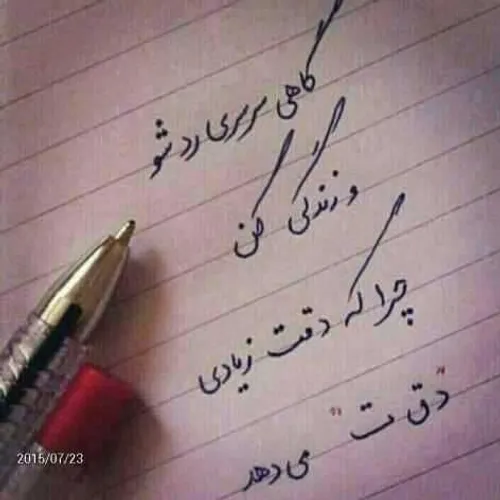 گاهی سرسری رد شو
و زندگی کن
چرا که دقت زیادی
"دق ت"
می دهد
2015/07/23